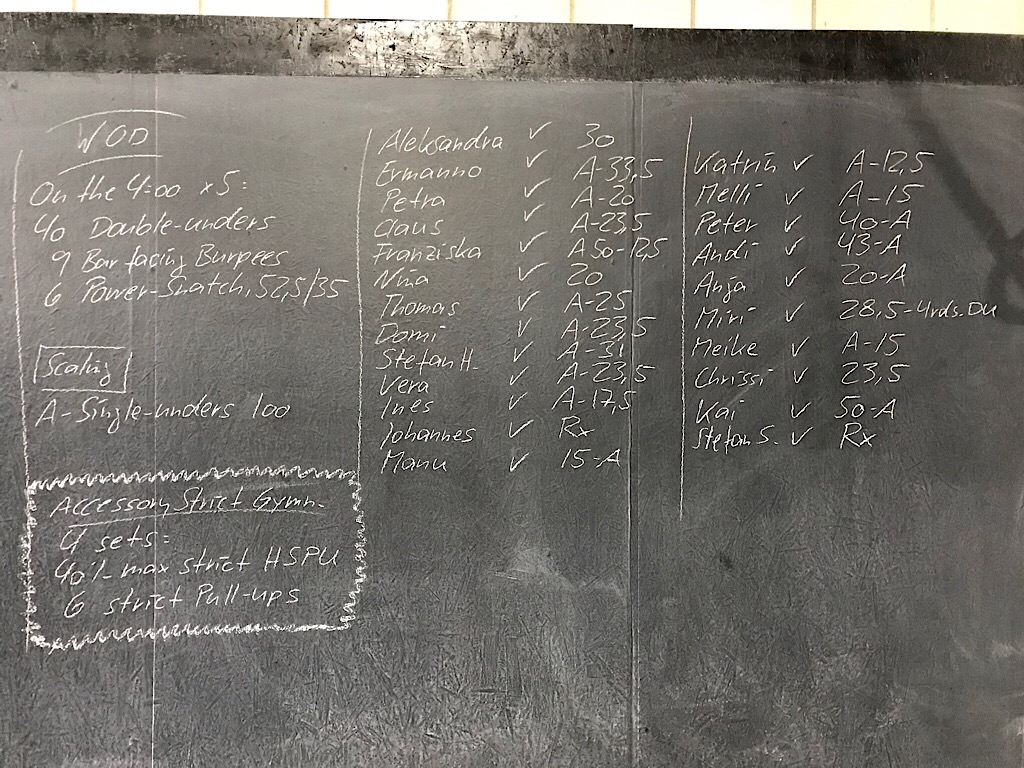 WOD
On the 4:00 x5:
40 Double-unders
9 Bar facing Burpees
6 Power-Snatch, 52,5/35
Scaling
A-Single-unders 100
Accessory Strict Gymn.
4 sets:
40% max strict HSPU
6 strict Pull-ups
Aleksandra ✓ 30
Ermanno ✓ A-33,5
Petra ✓ A-20
Claus ✓ A-23,5
Franziska ✓ A50-12,5
Nina ✓ 20
Thomas ✓ A-25
Domi ✓ A-23,5
Stefan H. ✓ A-31
Vera ✓ A-23,5
Ines ✓ A-17,5
Johannes ✓ Rx
Manu ✓ 15-A
Katrin ✓ A-12,5
Melli ✓ A-15
Peter ✓ 40-A
Andi ✓ 43-A
Anja ✓ 20-A
Miri ✓ 28,5-4rds.DU
Meike ✓ A-15
Chrissi ✓ 23,5
Kai ✓ 50-A
Stefan S. ✓ Rx